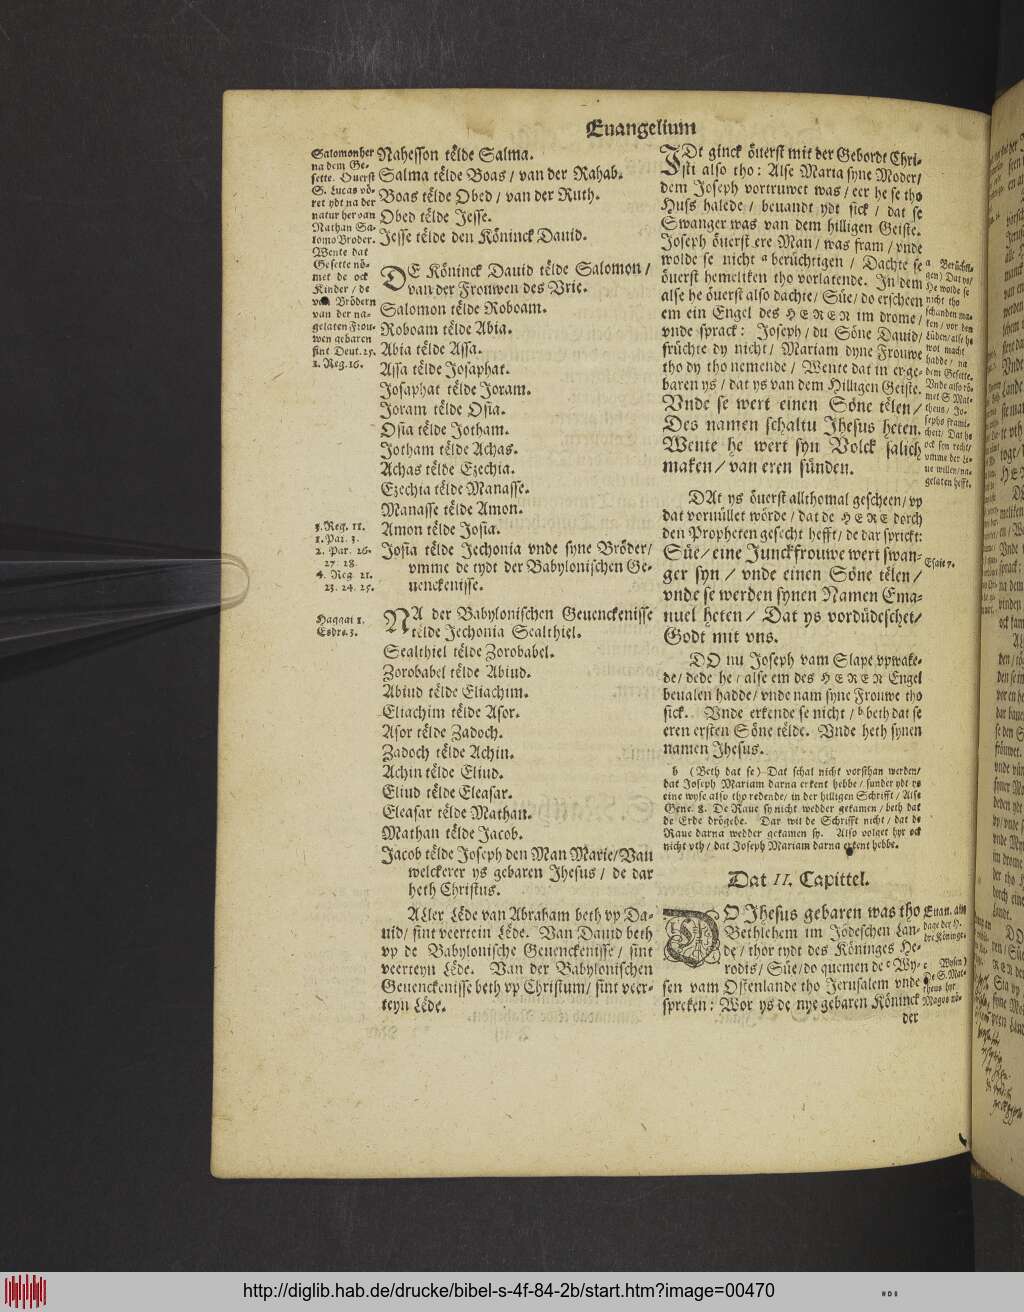 Euangelium
Salomon her
na dem Ge-
sette. Ouerst
S. Lucas vö-
ret ydt na der
natur her van
Nathan Sa-
lomo Broder.
Wente dat
Gesette nö-
met de ock
Kinder / de
van Brödern
van der na-
gelaten Frou-
wen gebaren
sint Deut. 25.
1. Reg. 16.
Nahesson telde Salma.
Salma telde Boas / van der Rahab.
Boas telde Obed / van der Ruth.
Obed telde Jesse.
Jesse telde den Köninck Dauid.
DE Köninck Dauid telde Salomon /
van der Frouwen des Vrie.
Salomon telde Roboam.
Roboam telde Abia.
Abia telde Assa.
Assa telde Josaphat.
Josaphat telde Joram.
Joram telde Osia.
Osia telde Jotham.
Jotham telde Achas.
Achas telde Ezechia.
Ezechia telde Manasse.
Manasse telde Amon.
Amon telde Josia.
Josia telde Jechonia vnde syne Bröder /
vmme de tydt der Babylonischen Ge-
uenckenisse.
1. Par. 3.
2. Par. 26.
27. 28.
4. Reg. 21.
23. 24. 25.
Haggai 1.
Esdre. 3.
NA der Babylonischen Geuenckenisse
telde Jechonia Sealthiel.
Sealthiel telde Zorobabel.
Zorobabel telde Abiud.
Abiud telde Eliachim.
Eliachim telde Asor.
Asor telde Zadoch.
Zadoch telde Achin.
Achin telde Eliud.
Eliud telde Eleasar.
Eleasar telde Mathan.
Mathan telde Jacob.
Jacob telde Joseph den Man Marie / Van
welckerer ys gebaren Jhesus / de dar
heth Christus.
ALler Lede van Abraham beth vp Da-
uid / sint veertein Lede. Van Dauid beth
vp de Babylonische Geuenckenisse / sint
veerteyn Lede. Van der Babylonischen
Geuenckenisse beth vp Christum / sint veer-
teyn Lede.
IDt ginck öuerst mit der Gebordt Chri-
sti also tho: Alse Maria syne Moder /
dem Joseph vortruwet was / eer he se tho
Huss halede / beuandt ydt sick / dat se
Swanger was van dem hilligen Geiste.
Joseph öuerst ere Man / was fram / vnde
wolde se nicht a berüchtigen / Dachte se
öuerst hemeliken tho vorlatende. In dem
alse he öuerst also dachte / Süe / do erscheen
em ein Engel des HEREN im drome /
vnde sprack: Joseph / du Söne Dauid /
früchte dy nicht / Mariam dyne Frouwe
tho dy tho nemende / Wente dat in er ge-
baren ys / dat ys van dem Hilligen Geiste.
Vnde se wert einen Söne telen /
Des namen schaltu Jhesus heten.
Wente he wert syn Volck salich
maken / van eren sünden.
a Berüchti-
gen) Dat ys /
He wolde se
nicht tho
schanden ma-
ken / vor den
Lüden / alse he
wol macht
hadde / na
dem Gesette.
Vnde also rö-
met S. Mat-
theus / Jo-
sephs frami-
cheit / Dat he
ock syn recht /
vmme der Le-
ue willen / na-
gelaten hefft.
DAt ys öuerst allthomal gescheen / vp
dat voruüllet wörde / dat de HERE dorch
den Propheten gesecht hefft / de dar sprickt:
Süe / eine Junckfrouwe wert swan-
ger syn / vnde einen Söne telen /
vnde se werden synen Namen Ema-
nuel heten / Dat ys vordüdeschet /
Godt mit vns.
Esaie 7.
DO nu Joseph vam Slape vpwake-
de / dede he / alse em des HEREN Engel
beualen hadde / vnde nam syne Frouwe tho
sick. Vnde erkende se nicht / b beth dat se
eren ersten Söne telde. Vnde heth synen
namen Jhesus.
b (Beth dat se) Dat schal nicht vorsthan werden /
dat Joseph Mariam darna erkent hebbe / sunder ydt ys
eine wyse also tho redende / in der hilligen Schrifft / Alse
Gene. 8. De Raue sy nicht wedder gekamen / beth dat
de Erde drögede. Dar wil de Schrifft nicht / dat de
Raue darna wedder gekamen sy. Also volget hyr ock
nicht vth / dat Joseph Mariam darna erkent hebbe.
Dat II. Capittel.
DO Jhesus gebaren was tho
Bethlehem im Jödeschen Lan-
de / thor tydt des Köninges He-
rodis / Süe / do quemen de c Wy-
sen vam Ostenlande tho Jerusalem vnde
spreken: Wor ys de nye gebaren Köninck
der
Euan. am
dage der H.
dre Köninge.
c Wysen)
De S. Mat-
theus hyr
Magos nö-
http://diglib.hab.de/drucke/bibel-s-4f-84-2b/start.htm?image=00470